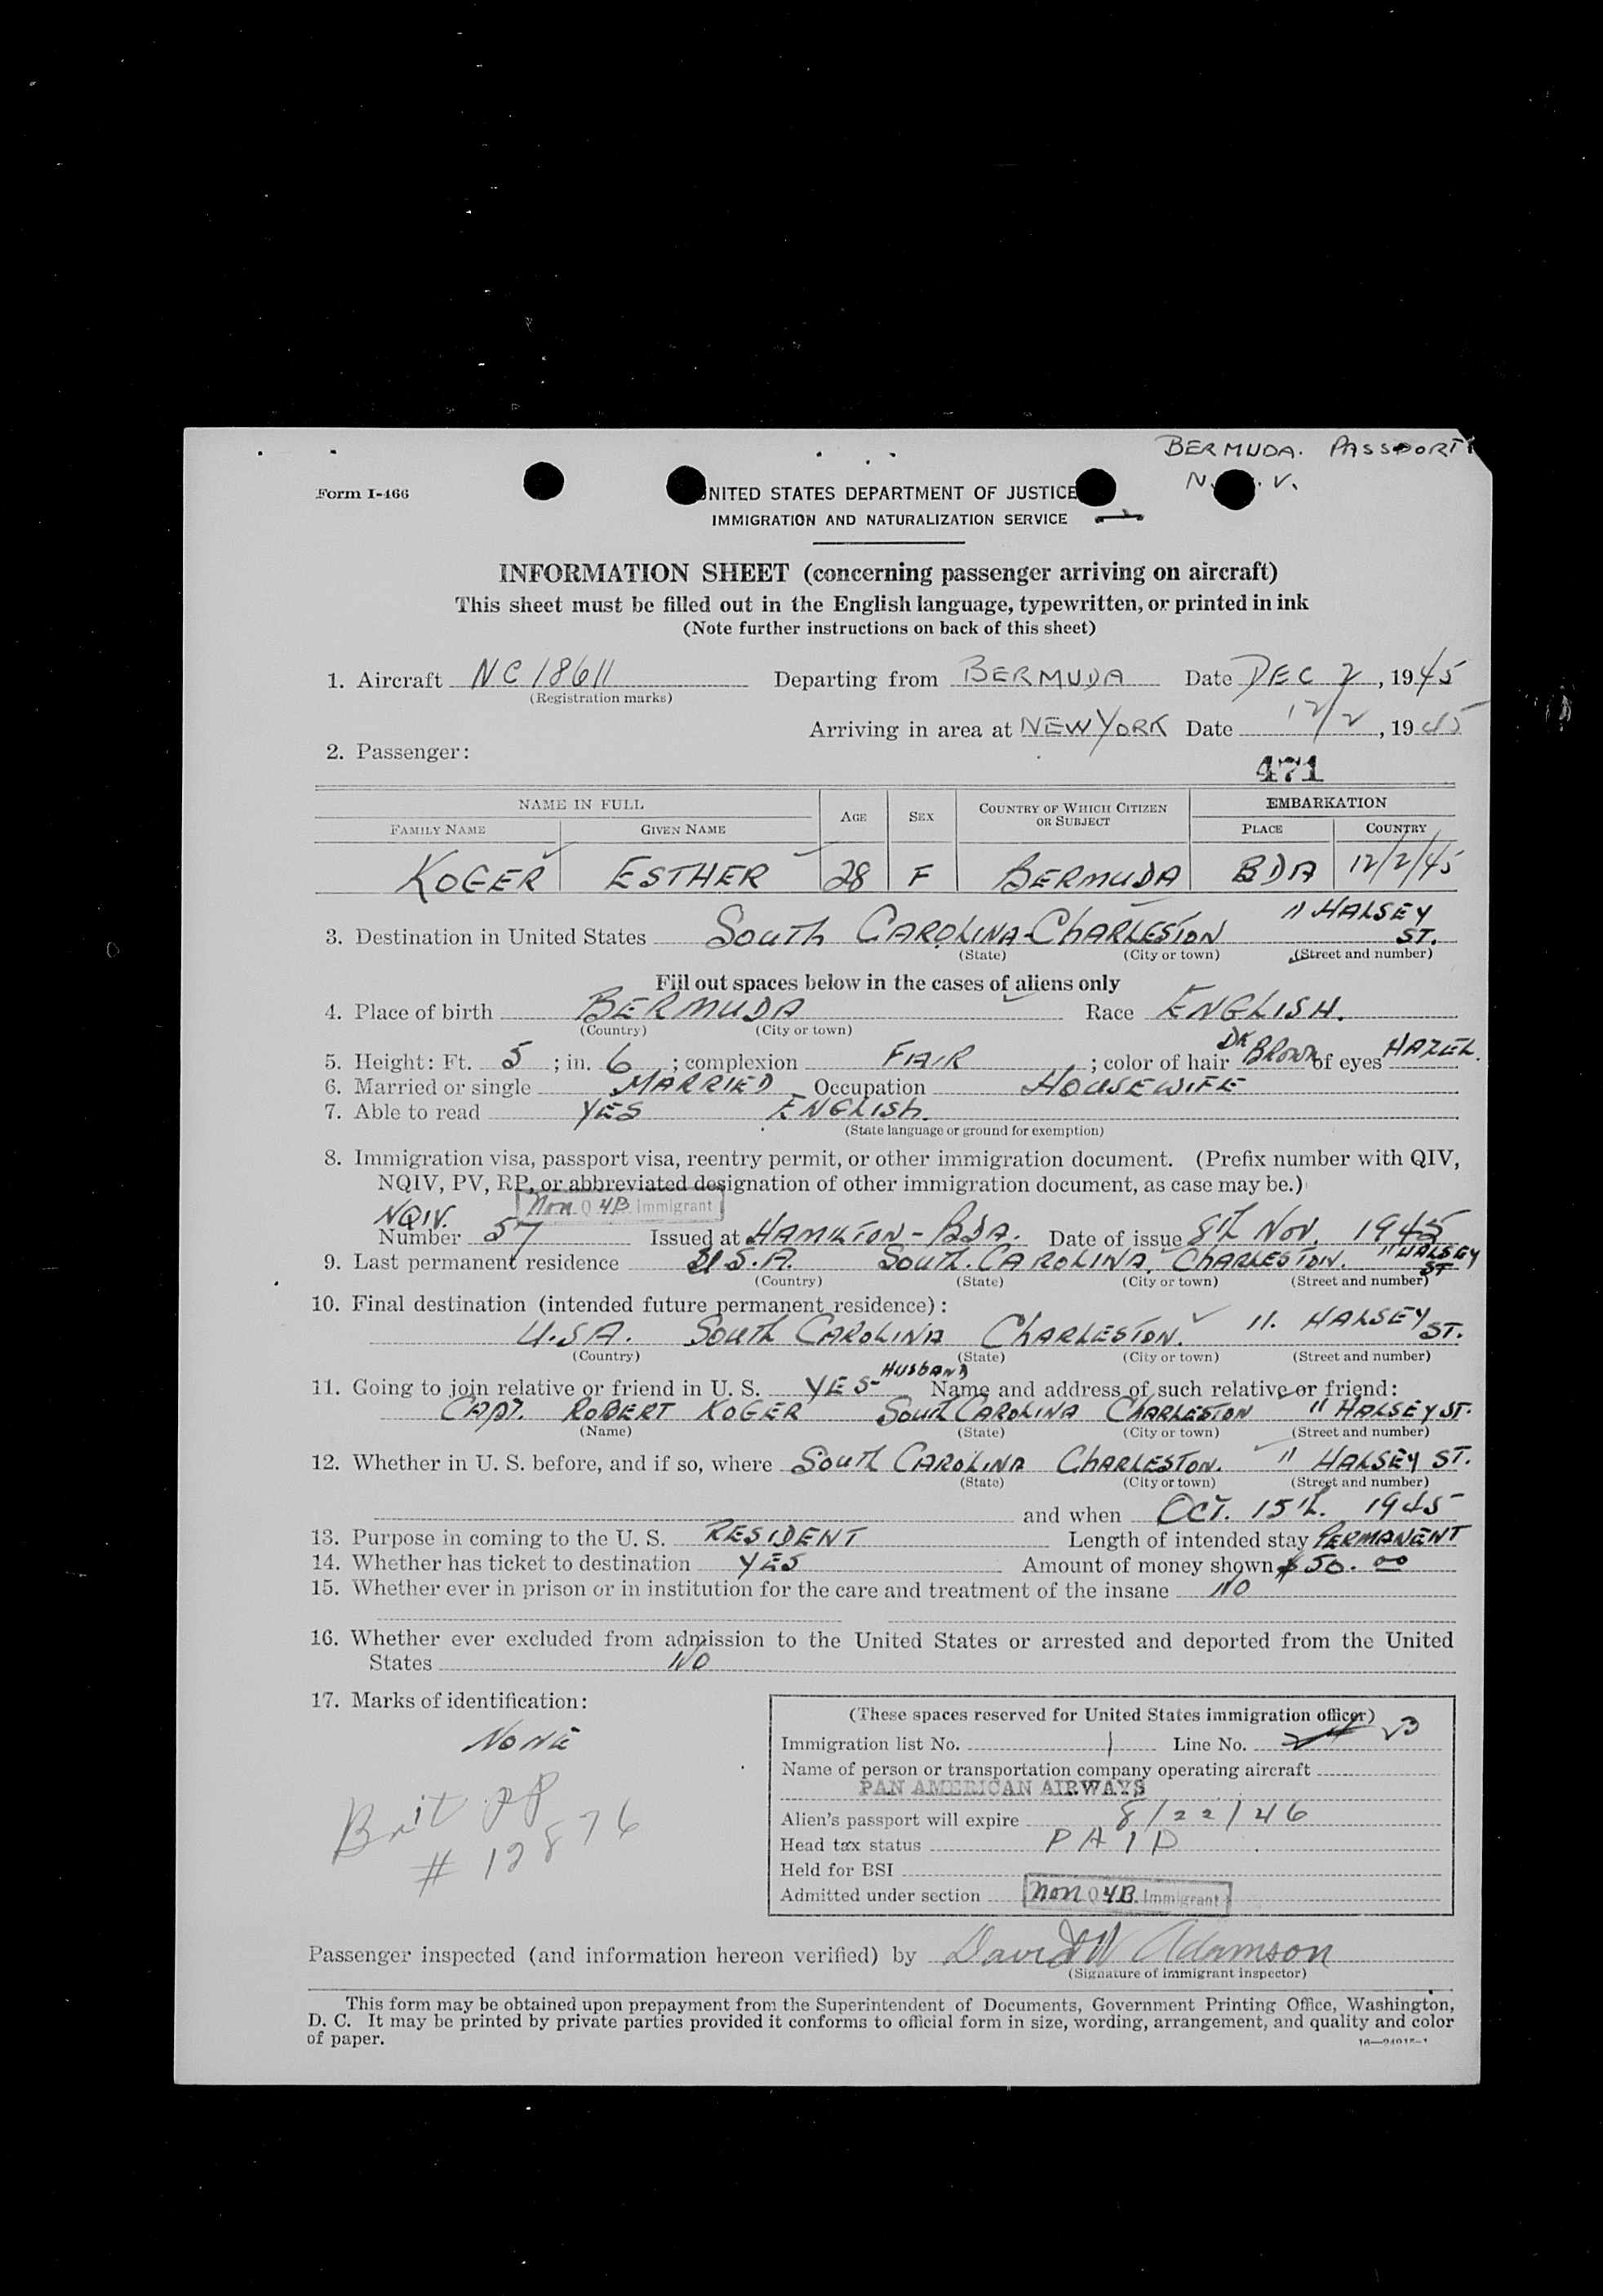 BERMUDA. PASSPORT
N. . V.
Form I-466
UNITED STATES DEPARTMENT OF JUSTICE
IMMIGRATION AND NATURALIZATION SERVICE
INFORMATION SHEET (concerning passenger arriving on aircraft)
This sheet must be filled out in the English language, typewritten, or printed in ink
(Note further instructions on back of this sheet)
1. Aircraft NC 18611 Departing from BERMUDA Date DEC 2, 1945
(Registration marks)
Arriving in area at NEW YORK Date 12/2, 1945
2. Passenger:
471
NAME IN FULL
FAMILY NAME GIVEN NAME AGE SEX COUNTRY OF WHICH CITIZEN OR SUBJECT EMBARKATION
PLACE COUNTRY
KOGER ESTHER 28 F BERMUDA BDA 12/2/45
3. Destination in United States SOUTH CAROLINA - CHARLESTON 11 HALSEY ST.
(State) (City or town) (Street and number)
Fill out spaces below in the cases of aliens only
4. Place of birth BERMUDA Race ENGLISH.
(Country) (City or town)
5. Height: Ft. 5; in. 6; complexion FAIR; color of hair DK BROWN of eyes HAZEL.
6. Married or single MARRIED Occupation HOUSEWIFE
7. Able to read YES ENGLISH.
(State language or ground for exemption)
8. Immigration visa, passport visa, reentry permit, or other immigration document. (Prefix number with QIV,
NQIV, PV, RP, or abbreviated designation of other immigration document, as case may be.)
NQIV. Non Q 4B Immigrant
Number 57 Issued at HAMILTON - BDA. Date of issue 8th NOV. 1945
9. Last permanent residence U.S.A. SOUTH. CAROLINA. CHARLESTON. 11 HALSEY ST
(Country) (State) (City or town) (Street and number)
10. Final destination (intended future permanent residence):
U.S.A. SOUTH CAROLINA CHARLESTON. 11. HALSEY ST.
(Country) (State) (City or town) (Street and number)
11. Going to join relative or friend in U. S. YES - HUSBAND Name and address of such relative or friend:
CAPT. ROBERT KOGER SOUTH CAROLINA CHARLESTON 11 HALSEY ST.
(Name) (State) (City or town) (Street and number)
12. Whether in U. S. before, and if so, where SOUTH CAROLINA CHARLESTON. 11 HALSEY ST.
(State) (City or town) (Street and number)
and when OCT. 15th. 1945
13. Purpose in coming to the U. S. RESIDENT Length of intended stay PERMANENT
14. Whether has ticket to destination YES Amount of money shown $50.00
15. Whether ever in prison or in institution for the care and treatment of the insane NO
16. Whether ever excluded from admission to the United States or arrested and deported from the United
States NO
17. Marks of identification:
NONE
Brit PP
# 12876
(These spaces reserved for United States immigration officer)
Immigration list No. 1 Line No.
Name of person or transportation company operating aircraft
PAN AMERICAN AIRWAYS
Alien's passport will expire 8/22/46
Head tax status PAID
Held for BSI
Admitted under section Non Q 4B Immigrant
Passenger inspected (and information hereon verified) by David W Adamson
(Signature of immigrant inspector)
This form may be obtained upon prepayment from the Superintendent of Documents, Government Printing Office, Washington,
D. C. It may be printed by private parties provided it conforms to official form in size, wording, arrangement, and quality and color
of paper.